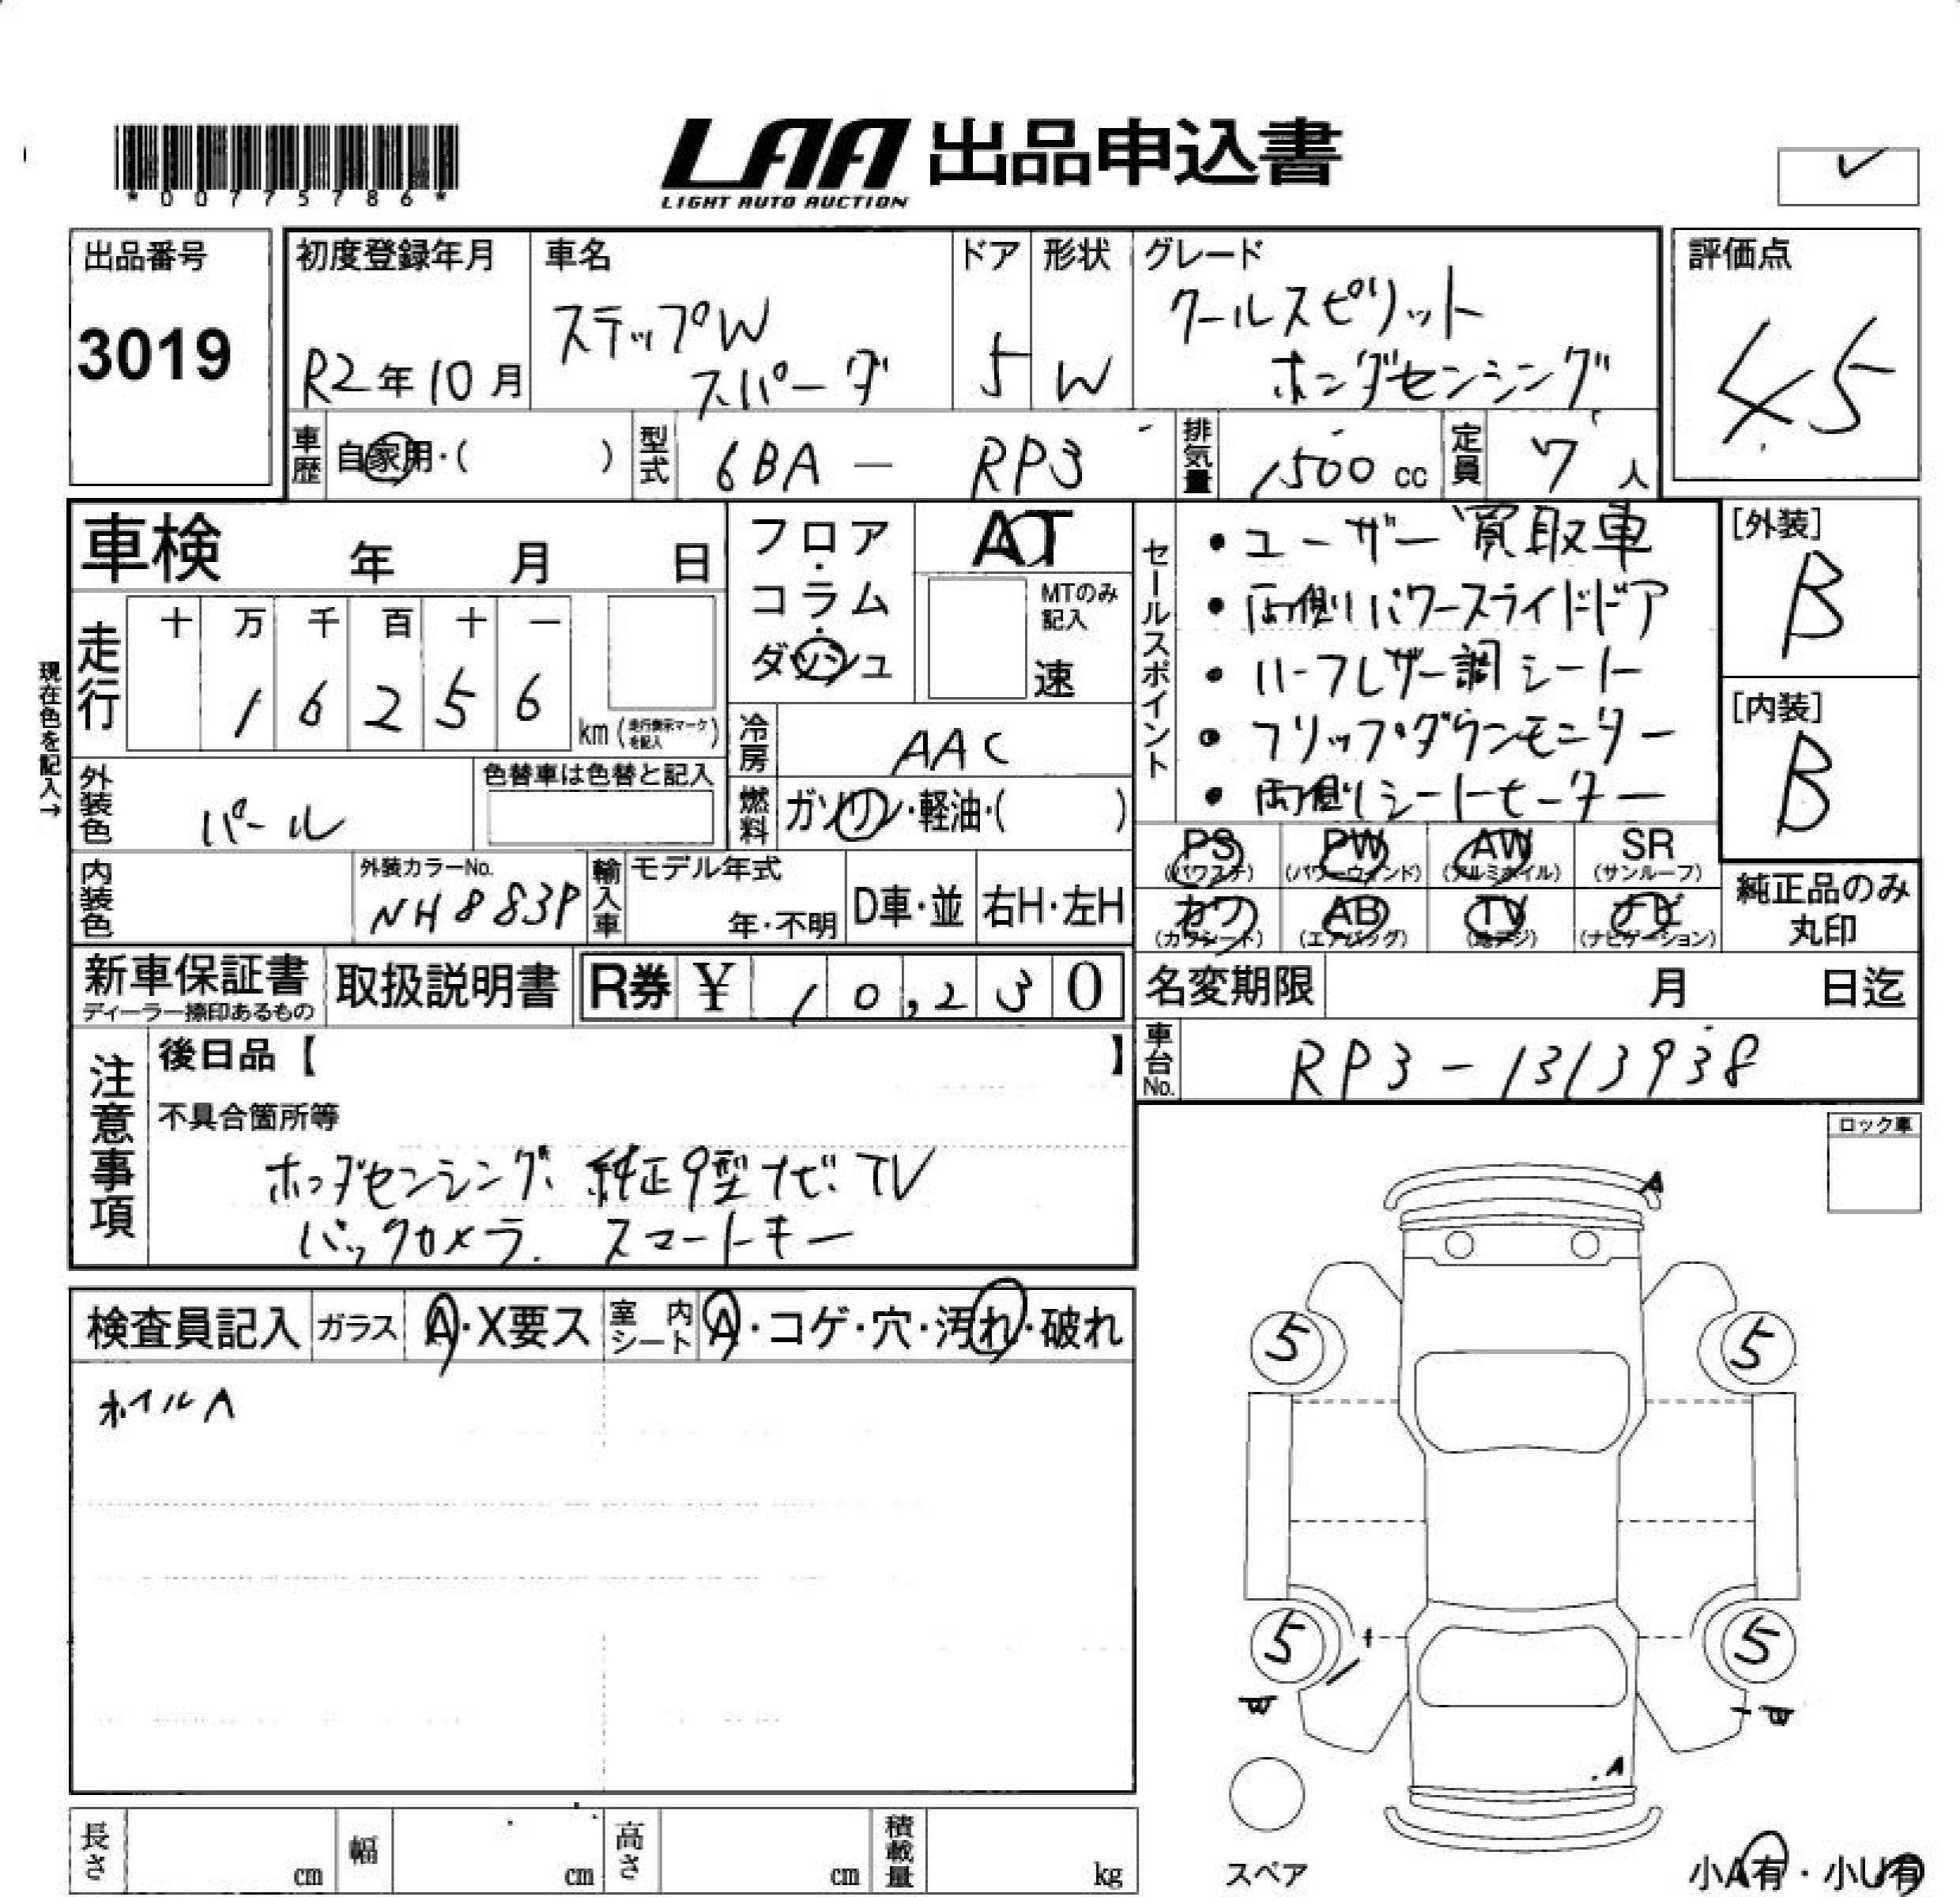 *00775786*
LAA 出品申込書
LIGHT AUTO AUCTION
出品番号
3019
初度登録年月
R2年10月
車名
ステップW
スパーダ
ドア
5
形状
W
グレード
クールスピリット
ホンダセンシング
評価点
4.5
車歴
自家用・( )
型式
6BA - RP3
排気量
1500 cc
定員
7人
車検 年 月 日
現在色を記入→
走行
十 万 千 百 十 一
1 6 2 5 6
km (走行表示マークを記入)
フロア・
コラム・
ダッシュ
AT
MTのみ
記入
速
冷房
AAC
燃料
ガソリン・軽油・( )
外装色
パール
色替車は色替と記入
内装色
外装カラーNo.
NH883P
輸入車
モデル年式
年・不明
D車・並
右H・左H
セールスポイント
・ユーザー買取車
・両側パワースライドドア
・ハーフレザー調シート
・フリップダウンモニター
・両側シートヒーター
[外装]
B
[内装]
B
PS
(パワステ)
PW
(パワーウィンド)
AW
(アルミホイル)
SR
(サンルーフ)
カワ
(カワシート)
AB
(エアバッグ)
TV
(地デジ)
ナビ
(ナビゲーション)
純正品のみ
丸印
新車保証書
ディーラー捺印あるもの
取扱説明書
R券 ¥ 10,230
名変期限 月 日迄
車台No.
RP3-1313938
注意事項
後日品【 】
不具合箇所等
ホンダセンシング、純正9型ナビ.TV
バックカメラ. スマートキー
ロック車
検査員記入
ガラス
A・X要ス
室内
シート
A・コゲ・穴・汚れ・破れ
ホイルA
A
5
5
5
5
A
長さ cm
幅 cm
高さ cm
積載量 kg
スペア
小A有・小U有